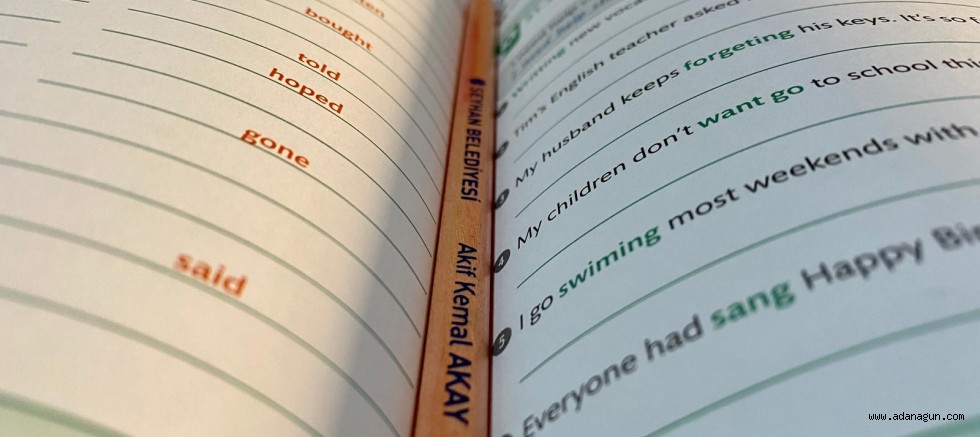 bought
told
hoped
gone
said
SEYHAN BELEDİYESİ
Akif Kemal AKAY
writing new
Tim's English teacher asked
My husband keeps forgeting his keys. It's so
4 My children don't want go to school
5 I go swiming most weekends with
Everyone had sang Happy
www.adanagun.com